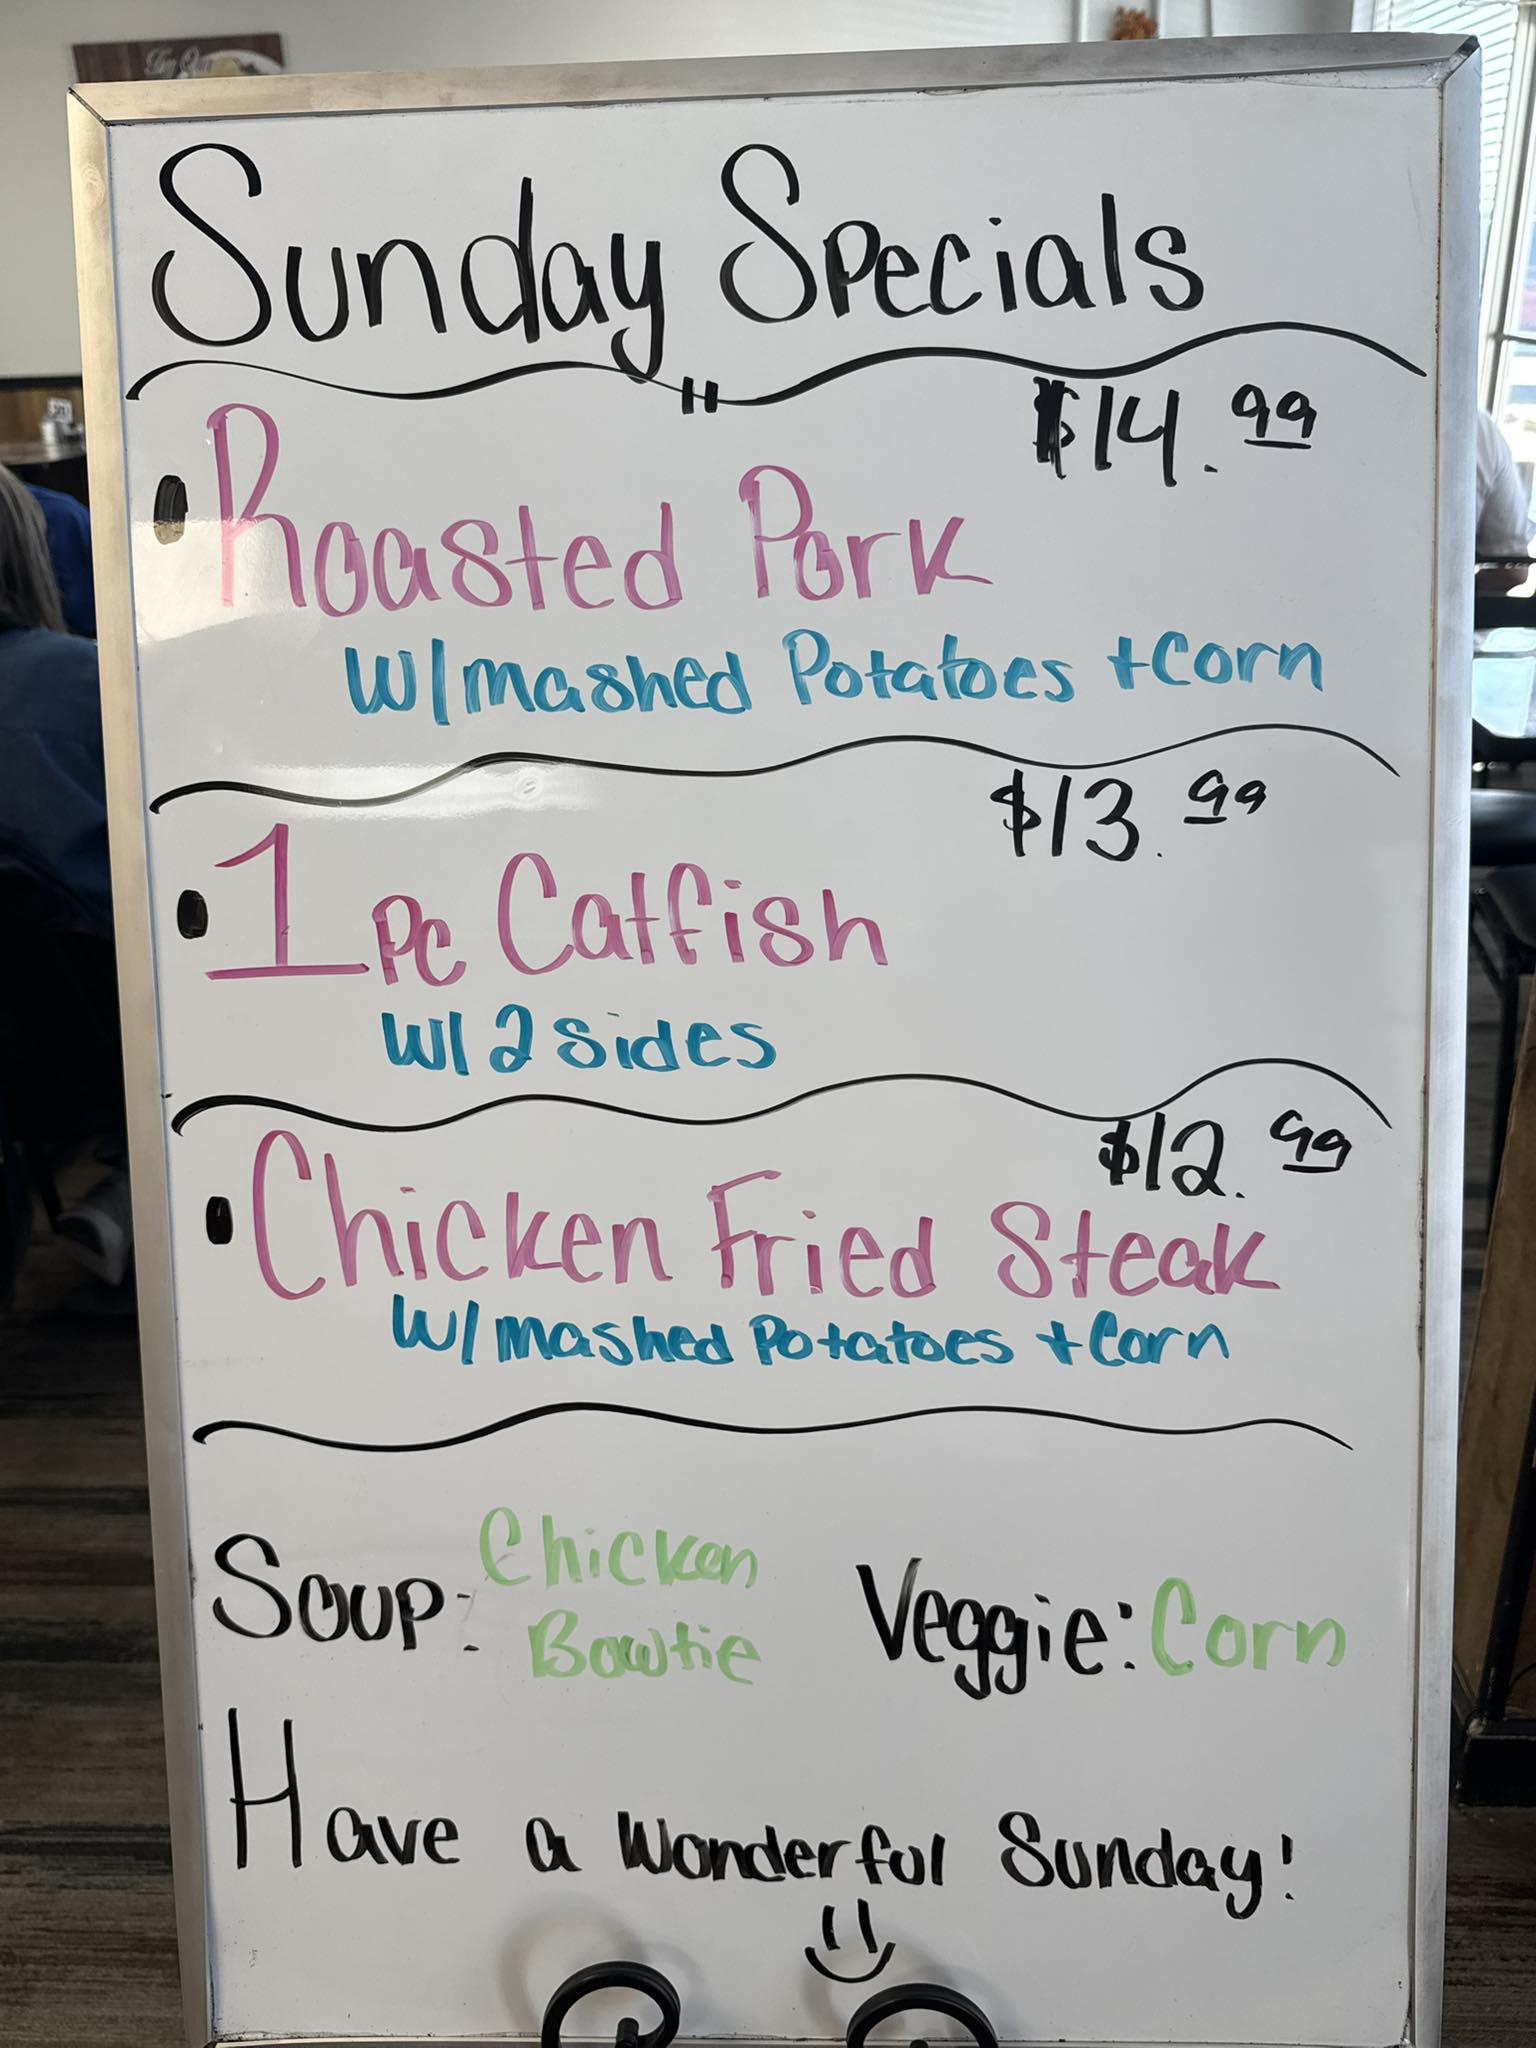 Sunday Specials
$14.99
Roasted Pork
W/mashed Potatoes + Corn
$13.99
1 PC Catfish
W/ 2 Sides
$12.99
Chicken Fried Steak
W/mashed Potatoes + Corn
Soup: Chicken Bowtie
Veggie: Corn
Have a Wonderful Sunday!